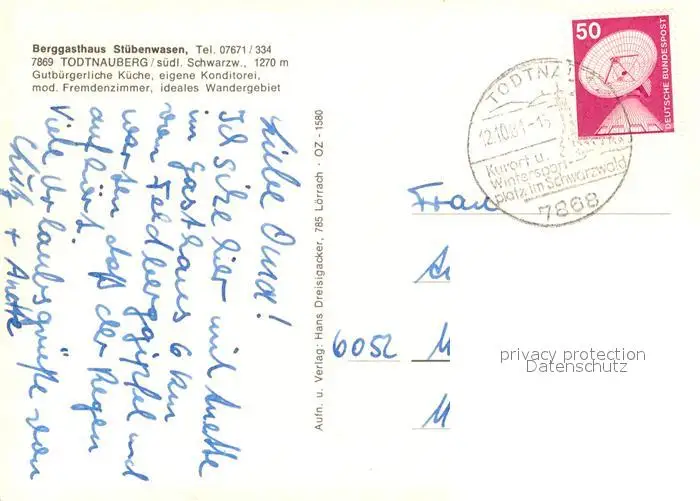 Berggasthaus Stübenwasen, Tel. 07671/334
7869 TODTNAUBERG/südl. Schwarzw., 1270 m
Gutbürgerliche Küche, eigene Konditorei,
mod. Fremdenzimmer, ideales Wandergebiet
Liebe Oma!
Ich sitze hier mit Anette
im Gasthaus 6 km
vom Feldberggipfel und
warten daß der Regen
aufhört.
Viele Urlaubsgrüße von
+ Anette
Aufn. u. Verlag: Hans Dreisigacker, 785 Lörrach · OZ - 1580
50
DEUTSCHE BUNDESPOST
TODTNAU
12.10.81-15
Kurort u.
Wintersport-
platz im Schwarzwald
7868
Frau
6052 M
M
privacy protection
Datenschutz